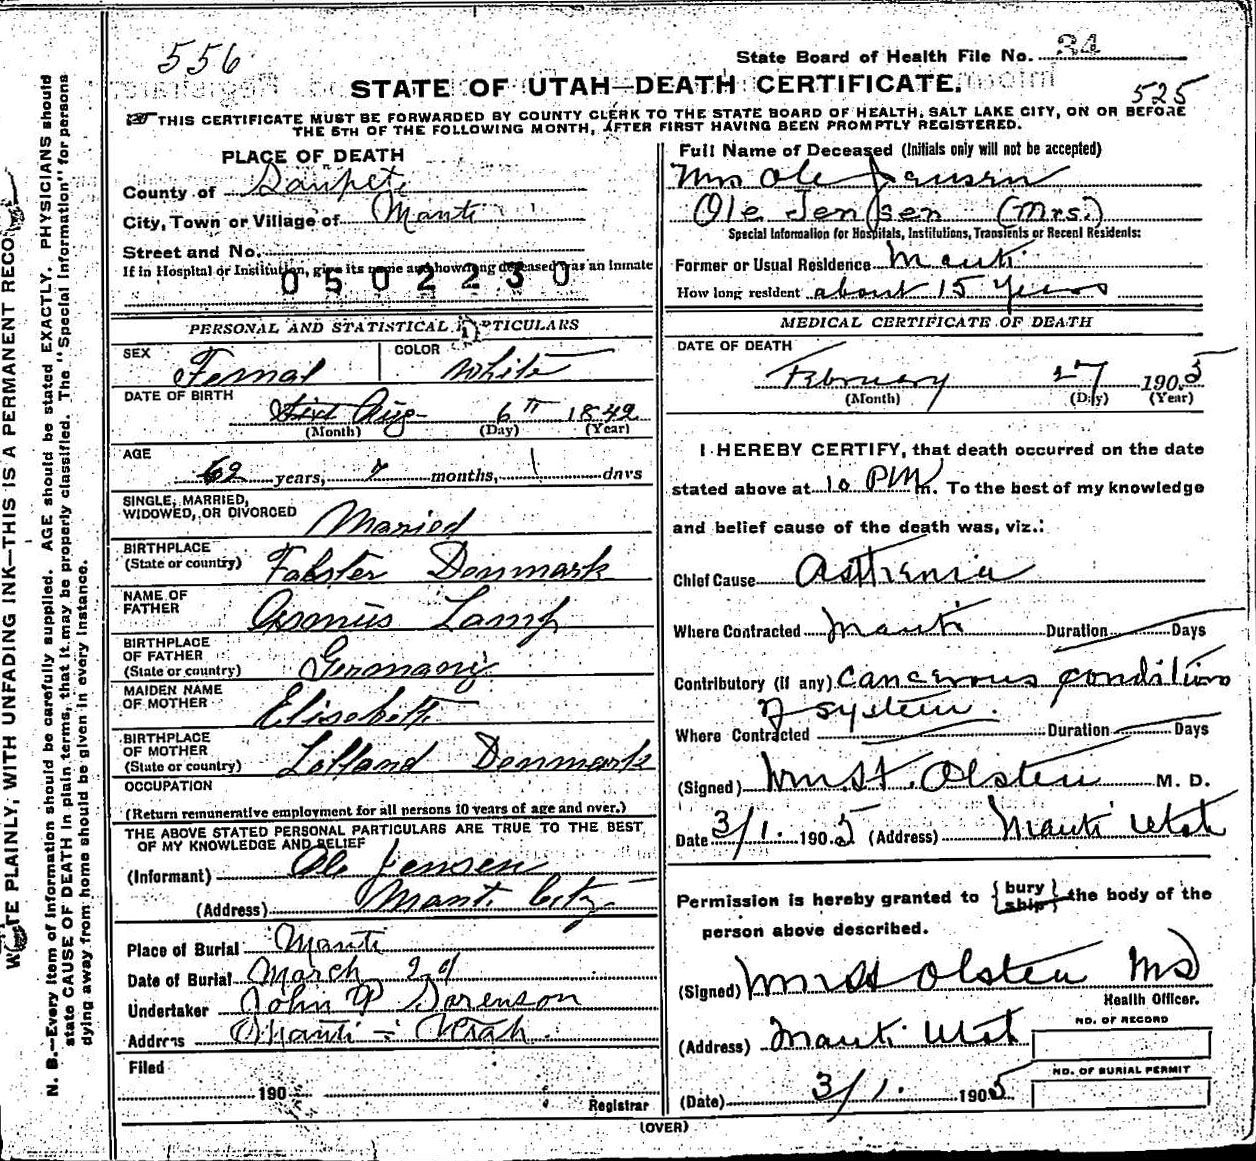 556
State Board of Health File No. 34
STATE OF UTAH—DEATH CERTIFICATE.
525
THIS CERTIFICATE MUST BE FORWARDED BY COUNTY CLERK TO THE STATE BOARD OF HEALTH, SALT LAKE CITY, ON OR BEFORE
THE 5TH OF THE FOLLOWING MONTH, AFTER FIRST HAVING BEEN PROMPTLY REGISTERED.
PLACE OF DEATH
County of Sanpete
City, Town or Village of Manti
Street and No.
If in Hospital or Institution, give its name and how long deceased was an inmate
0502230
PERSONAL AND STATISTICAL PARTICULARS
SEX Femal COLOR White
DATE OF BIRTH Aug 6th 1842
(Month) (Day) (Year)
AGE
62 years, 7 months, 1 days
SINGLE, MARRIED,
WIDOWED, OR DIVORCED Maried
BIRTHPLACE
(State or country) Falster Denmark
NAME OF
FATHER Lamp
BIRTHPLACE
OF FATHER
(State or country) Germany
MAIDEN NAME
OF MOTHER Elisebett
BIRTHPLACE
OF MOTHER
(State or country) Lolland Denmark
OCCUPATION
(Return remunerative employment for all persons 10 years of age and over.)
THE ABOVE STATED PERSONAL PARTICULARS ARE TRUE TO THE BEST
OF MY KNOWLEDGE AND BELIEF
(Informant) Ole Jensen
(Address) Manti City
Place of Burial Manti
Date of Burial March 2d
Undertaker John P Sorenson
Address Manti - Utah
Filed
190
Registrar
Full Name of Deceased (Initials only will not be accepted)
Mrs Ole Jensen
Ole Jensen (Mrs.)
Special Information for Hospitals, Institutions, Transients or Recent Residents:
Former or Usual Residence Manti
How long resident about 15 years
MEDICAL CERTIFICATE OF DEATH
DATE OF DEATH
February 27 1905
(Month) (Day) (Year)
I HEREBY CERTIFY, that death occurred on the date
stated above at 10 PM m. To the best of my knowledge
and belief cause of the death was, viz.:
Chief Cause Asthenia
Where Contracted Manti Duration Days
Contributory (if any) cancerous condition
of system.
Where Contracted Duration Days
(Signed) Wm St. Olsten M. D.
Date 3/1. 1905 (Address) Manti Utah
Permission is hereby granted to {bury ship} the body of the
person above described.
(Signed) Wm St Olsten MD
Health Officer.
(Address) Manti Utah
NO. OF RECORD
NO. OF BURIAL PERMIT
(Date) 3/1. 1905
(OVER)
WRITE PLAINLY, WITH UNFADING INK—THIS IS A PERMANENT RECORD
N. B.—Every item of information should be carefully supplied. AGE should be stated EXACTLY. PHYSICIANS should
state CAUSE OF DEATH in plain terms, that it may be properly classified. The "Special Information" for persons
dying away from home should be given in every instance.